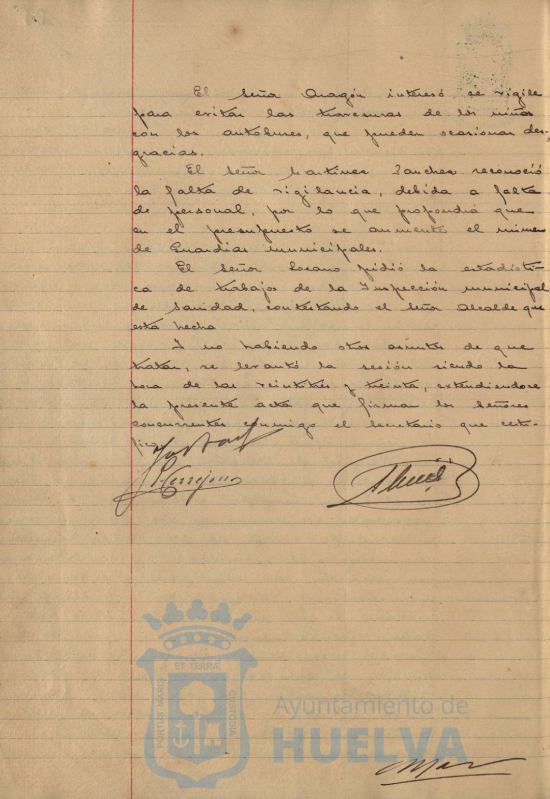 El señor Aragón interesó se vigile
para evitar las travesuras de los niños
con los autobuses, que pueden ocasionar des-
gracias.
El señor Martínez Sanchez reconoció
la falta de vigilancia, debida a falta
de personal, por lo que propondrá que
en el presupuesto se aumente el número
de Guardias municipales.
El señor Lozano pidió la estadísti-
ca de trabajos de la Inspección municipal
de Sanidad, contestando el señor Alcalde que
está hecha
Y no habiendo otros asuntos de que
tratar, se levantó la sesión siendo la
hora de las veintitres y treinta, extendiendose
la presente acta que firman los señores
concurrentes conmigo el Secretario que certi-
fico.
PORTUS MARIS
ET TERRÆ
CUSTODIA
Ayuntamiento de
HUELVA